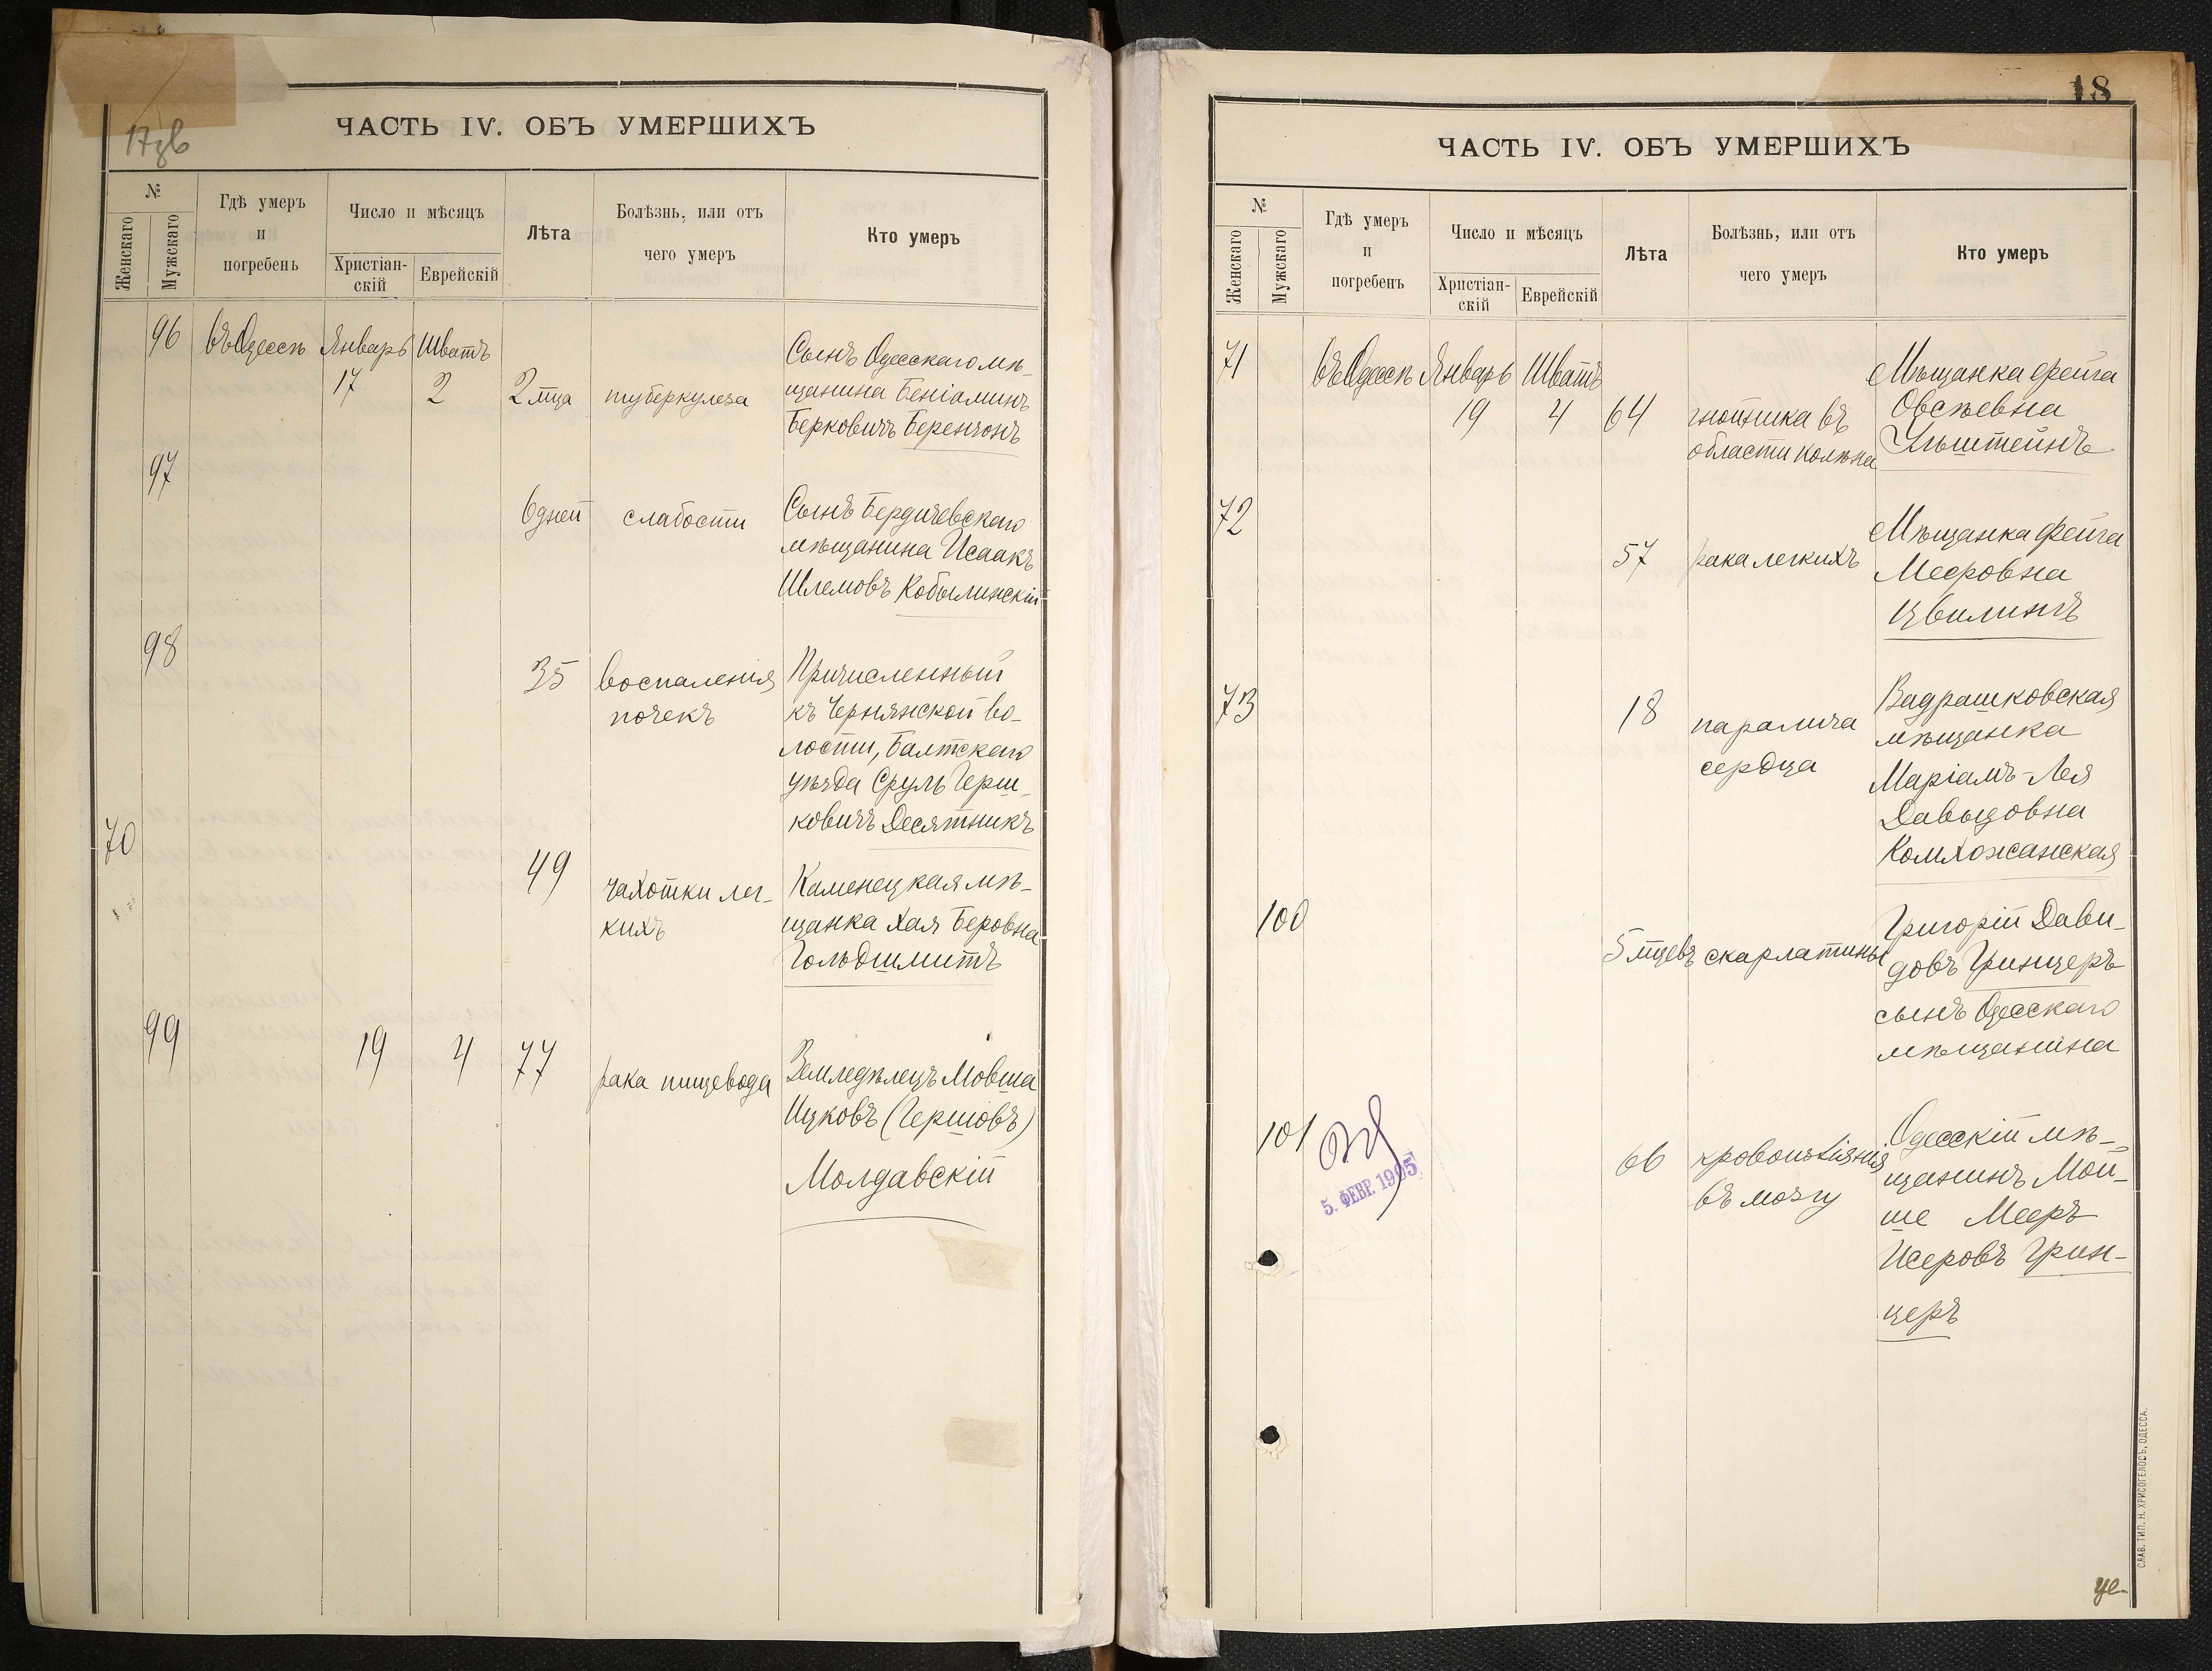 17зв
ЧАСТЬ IV. ОБЪ УМЕРШИХЪ
№
Женскаго
Мужскаго
Гдѣ умеръ
и
погребенъ
Число и мѣсяцъ
Христіан-
скій
Еврейскій
Лѣта
Болѣзнь, или отъ
чего умеръ
Кто умеръ
96 въ Одессѣ Январь Шватъ
17 2 2 мца туберкулеза
Сынъ Одесскаго мѣ-
щанина Беніаминъ
Берковичъ Беренчонъ
97
6 дней слабости
Сынъ Бердичевскаго
мѣщанина Исаакъ
Шлемовъ Кобылинскій
98
35 воспаленія
почекъ
Причисленный
къ Чернянской во-
лости, Балтскаго
уѣзда Сруль Герш-
ковичъ Десятникъ
70
49 чахотки лег-
кихъ
Каменецкая мѣ-
щанка Хая Беровна
Гольдшмитъ
99 19 4 77 рака пищевода
Земледѣлецъ Мовша
Ицковъ (Гершовъ)
Молдавскій
18
ЧАСТЬ IV. ОБЪ УМЕРШИХЪ
№
Женскаго
Мужскаго
Гдѣ умеръ
и
погребенъ
Число и мѣсяцъ
Христіан-
скій
Еврейскій
Лѣта
Болѣзнь, или отъ
чего умеръ
Кто умеръ
71 въ Одессѣ Январь Шватъ
19 4 64 гнойника въ
области колѣна
Мѣщанка Фейга
Овсѣевна
72
57 рака легкихъ
Мѣщанка Фейга
Мееровна
Цвилингъ
73
18 паралича
сердца
мѣщанка
Маріамъ-Лея
Давыдовна
100
5 мцевъ скарлатины
Григорій Дави-
довъ Гринцеръ
сынъ Одесскаго
мѣщанина
101
5. ФЕВР. 1905
66 кровоизліянія
въ мозгу
Одесскій мѣ-
щанинъ Мой-
ше Мееръ
Исеровъ Грин-
церъ
СЛАВ. ТИП. Н. ХРИСОГЕЛОСЪ, ОДЕССА.